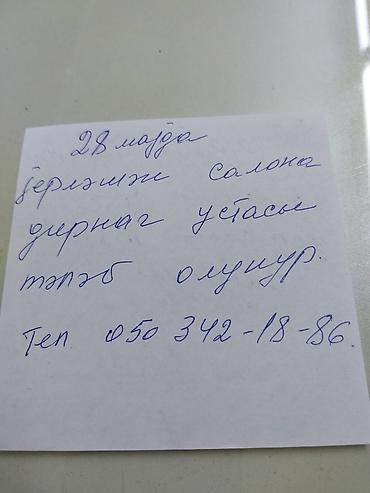 28 мајда
јерләшән салона
дырнаг устасы
тәләб олунур.
Тел 050 342-18-86.